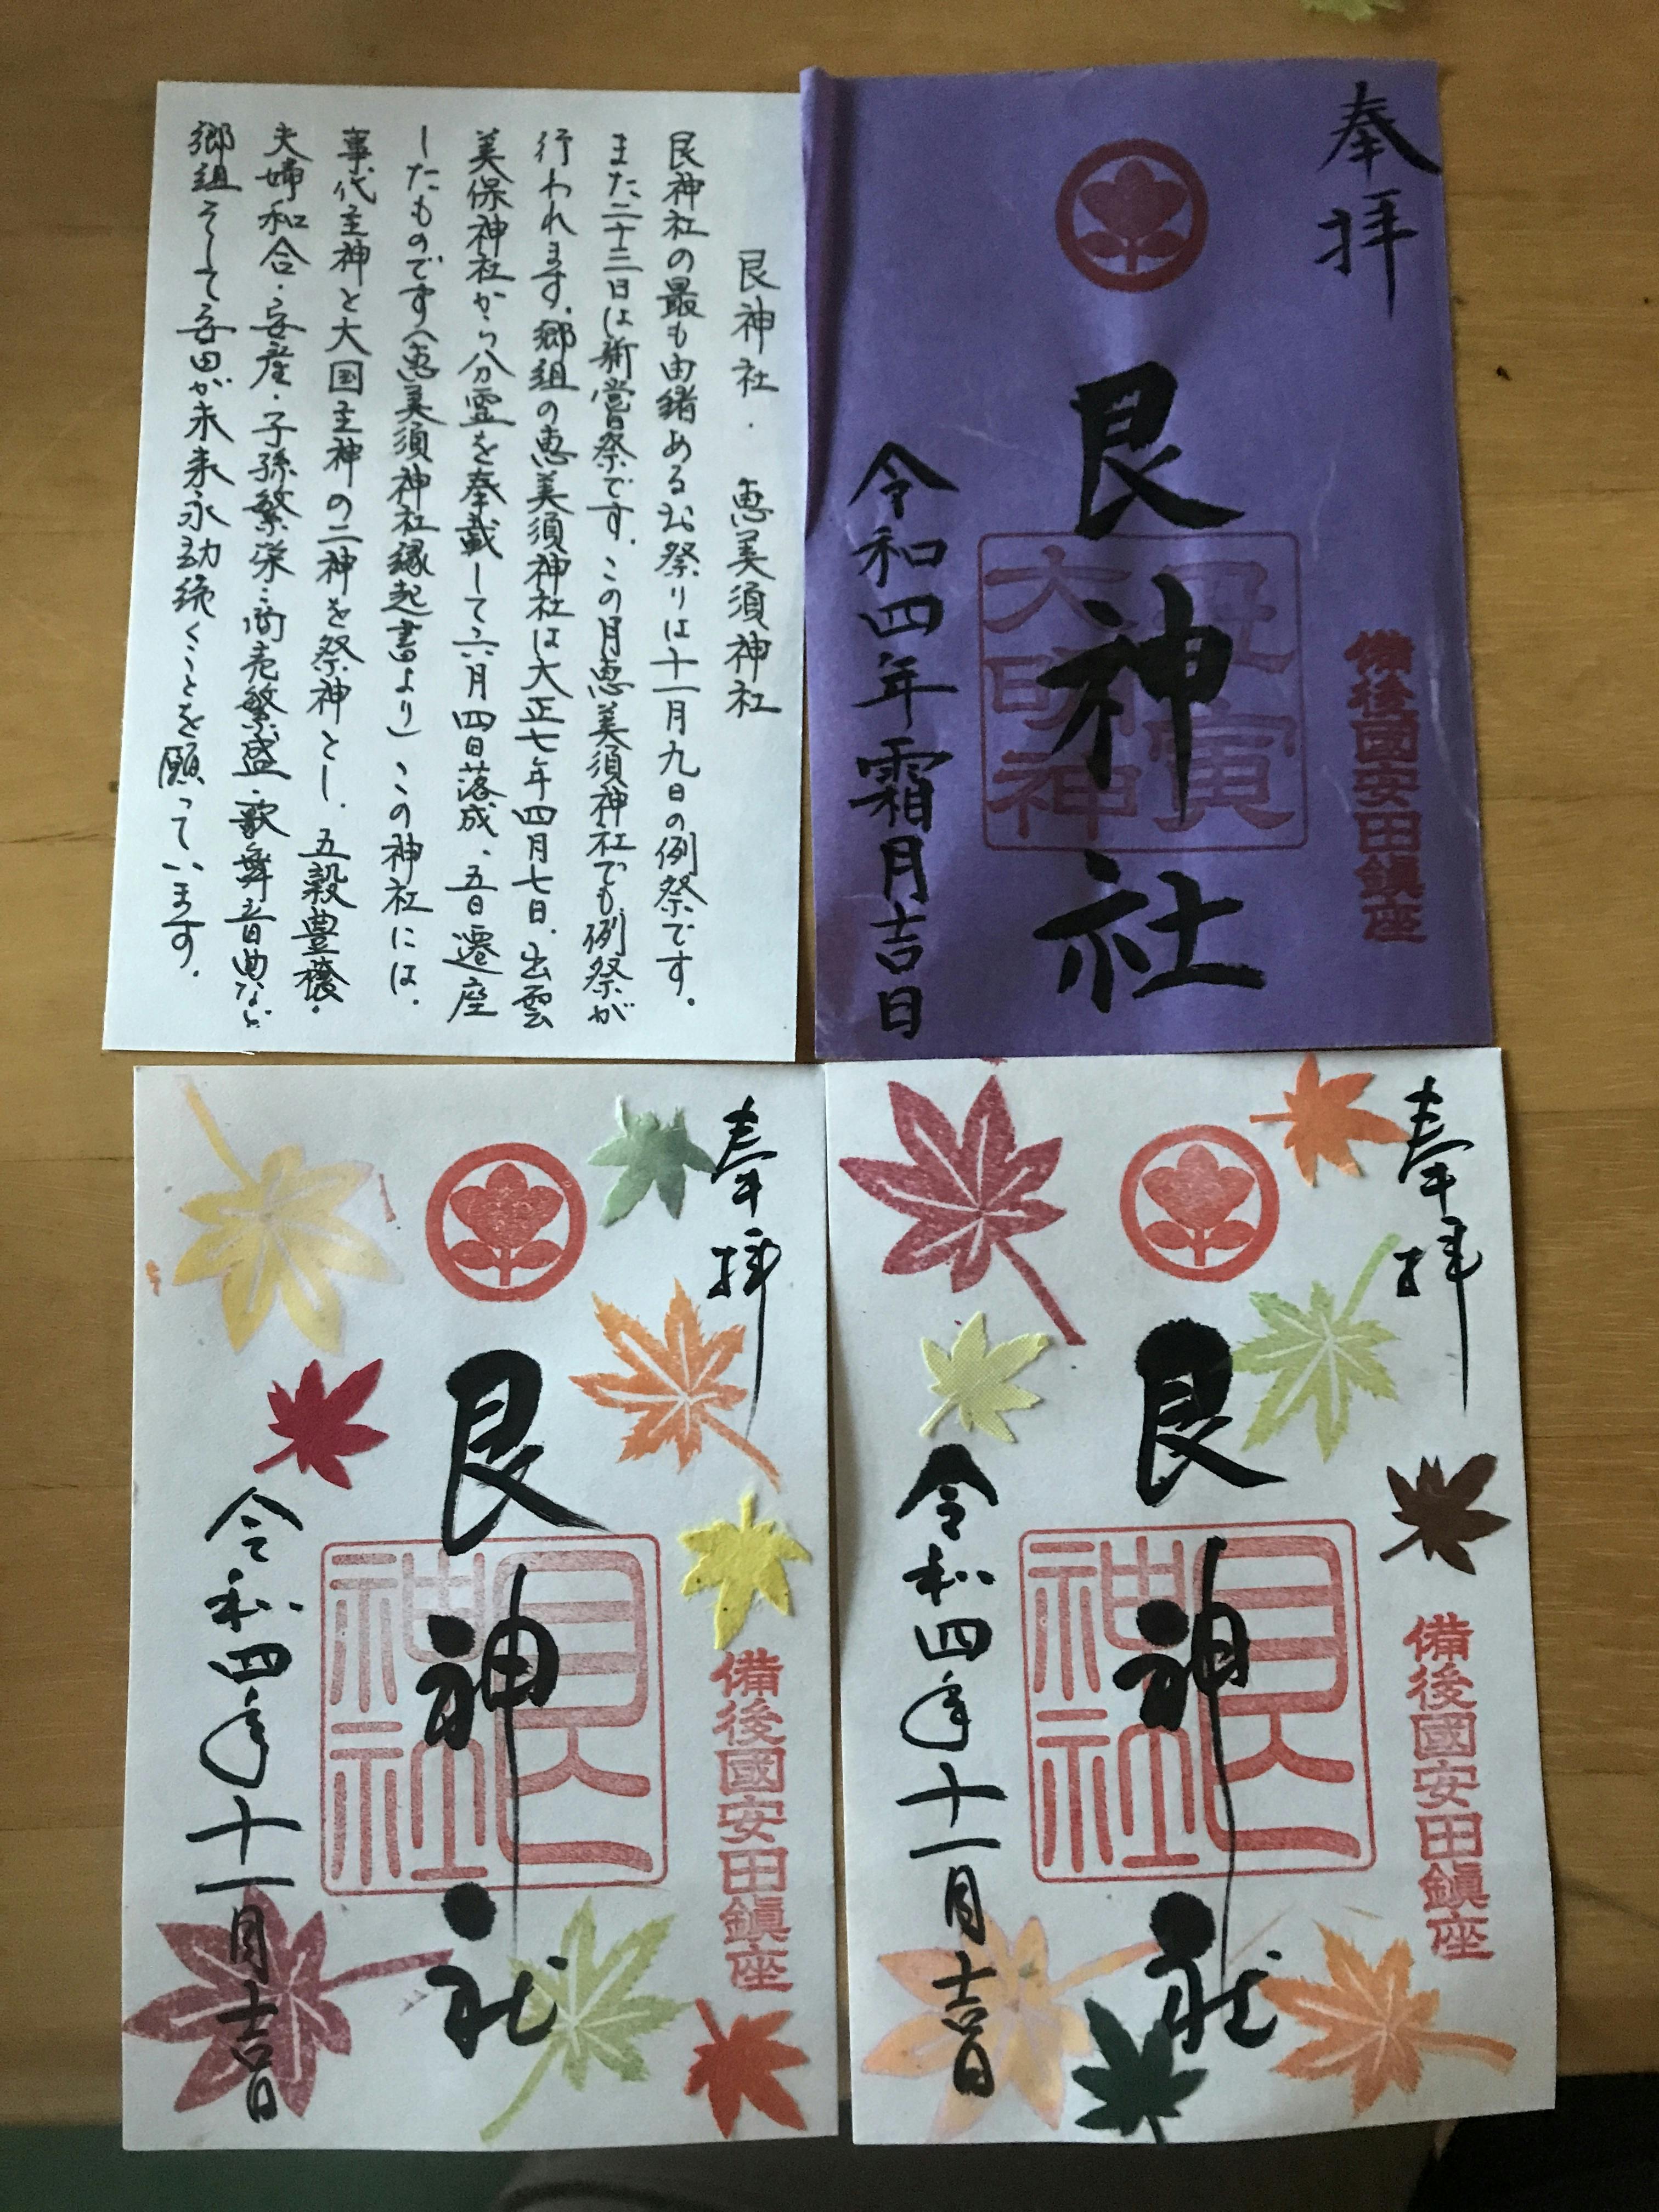 艮神社・恵美須神社
艮神社の最も由緒あるお祭りは十一月九日の例祭です。
また二十三日は新嘗祭です。この月恵美須神社でも例祭が
行われます。郷組の恵美須神社は大正七年四月七日、出雲
美保神社から分霊を奉載して六月四日落成、五日遷座
したものです(恵美須神社縁起書より)この神社には、
事代主神と大国主神の二神を祭神とし、五穀豊穣・
夫婦和合・安産・子孫繁栄・商売繁盛・歌舞音曲など
郷組そして安田が未来永劫続くことを願っています。
奉拝
備後國安田鎮座
艮神社
丑寅
大明神
令和四年霜月吉日
奉拝
備後國安田鎮座
艮神社
艮
神社
令和四年十一月吉日
奉拝
備後國安田鎮座
艮神社
艮
神社
令和四年十一月吉日